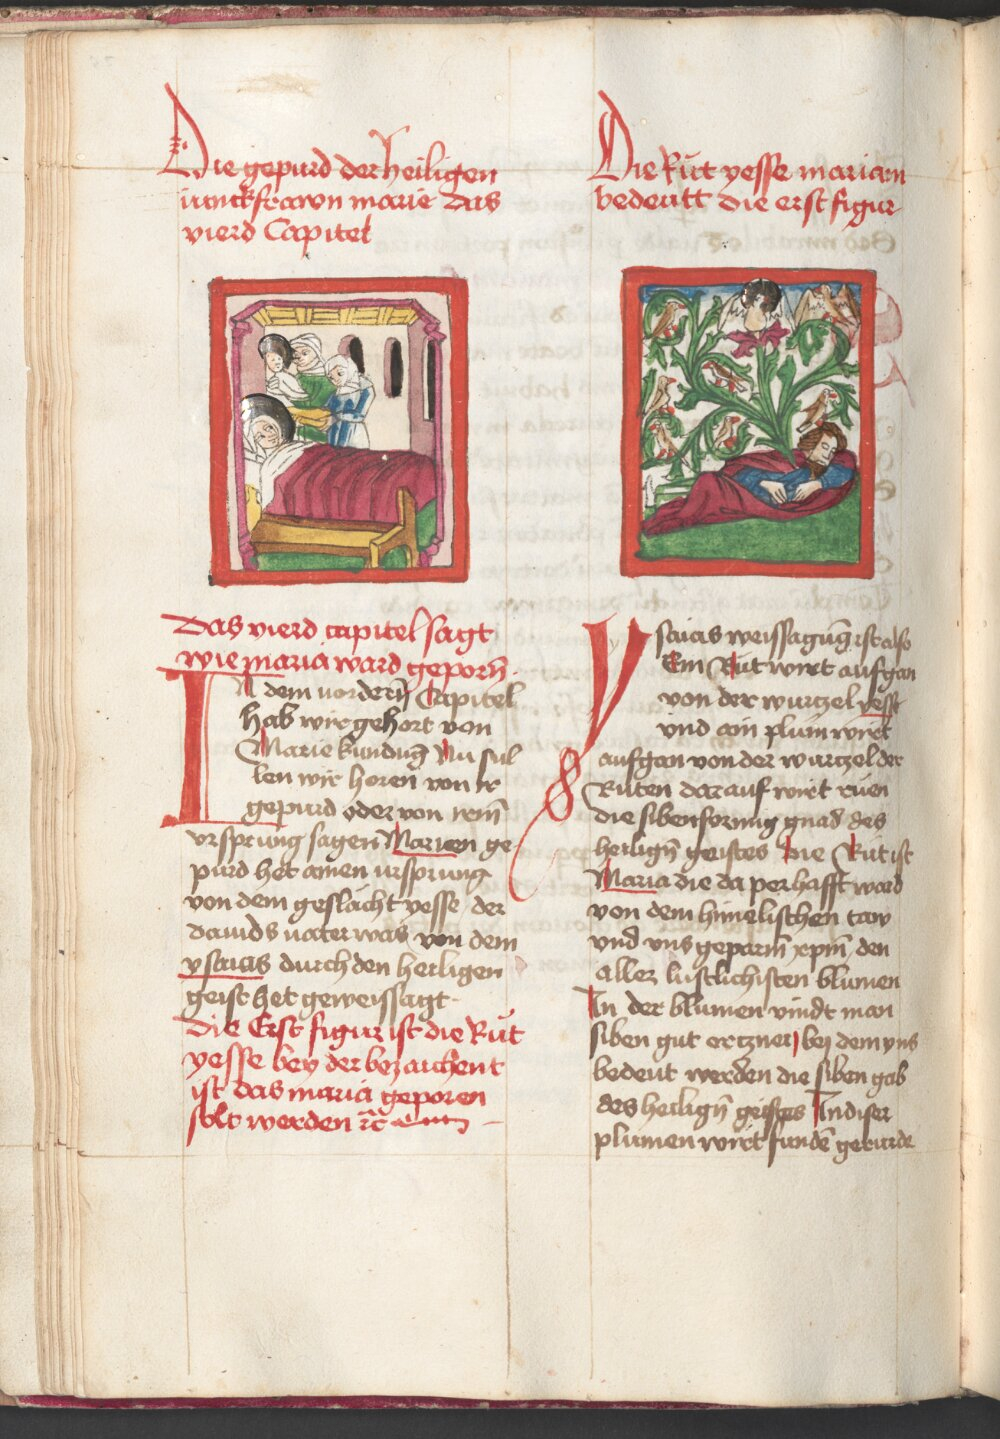 Die gepurd der heiligen
iunckfrawn marie Das
vierd Capitel
Das vierd capitel sagt
wie maria ward geporn̄
In dem vordern̄ Capitel
hab wir gehort von
Marie kundunḡ Nu sul
len wir horen von ir
gepurd oder von irem̄
vrsprung sagen Marien ge
purd het ainen ursprung
von dem geslächt yesse der
dauids vater was von dem
ysaias durch den heiligen
geist het geweissagt
Die Erst figur ist die Rut
yesse bey der bezaichent
ist das maria geporen
solt werden
Die Rut yesse mariam
bedeutt die erst figur
Ysaias weissagunḡ ist also
Ein Rut wirt aufgan
von der wurtzel yesse
vnd ain plum wirt
aufgan von der wurtzel der
Ruten darauf wirt ruen
die sibenformig gnad des
heilign̄ geistes Die Rut ist
Maria die da perhafft ward
von dem himelischen taw
vnd vns geparn̄ xpm̄ den
aller lustlichisten blumen
In der blumen vindt man
siben gut ertzney bej dem yns
bedeut werden die siben gab
des heilign̄ geistes In diser
plumen wirt funden̄